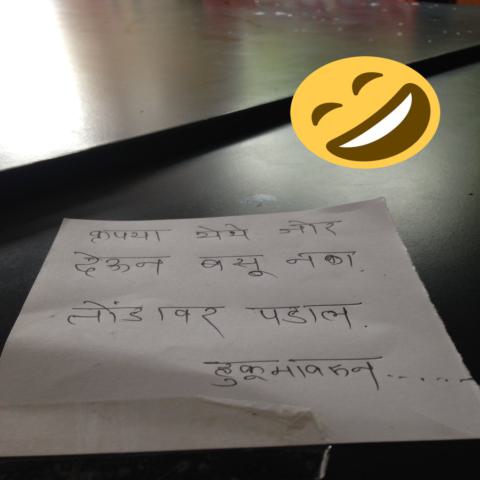 कृपया येथे जोर
देऊन बसू नका.
तोंडावर पडाल.
हुकूमावरुन......